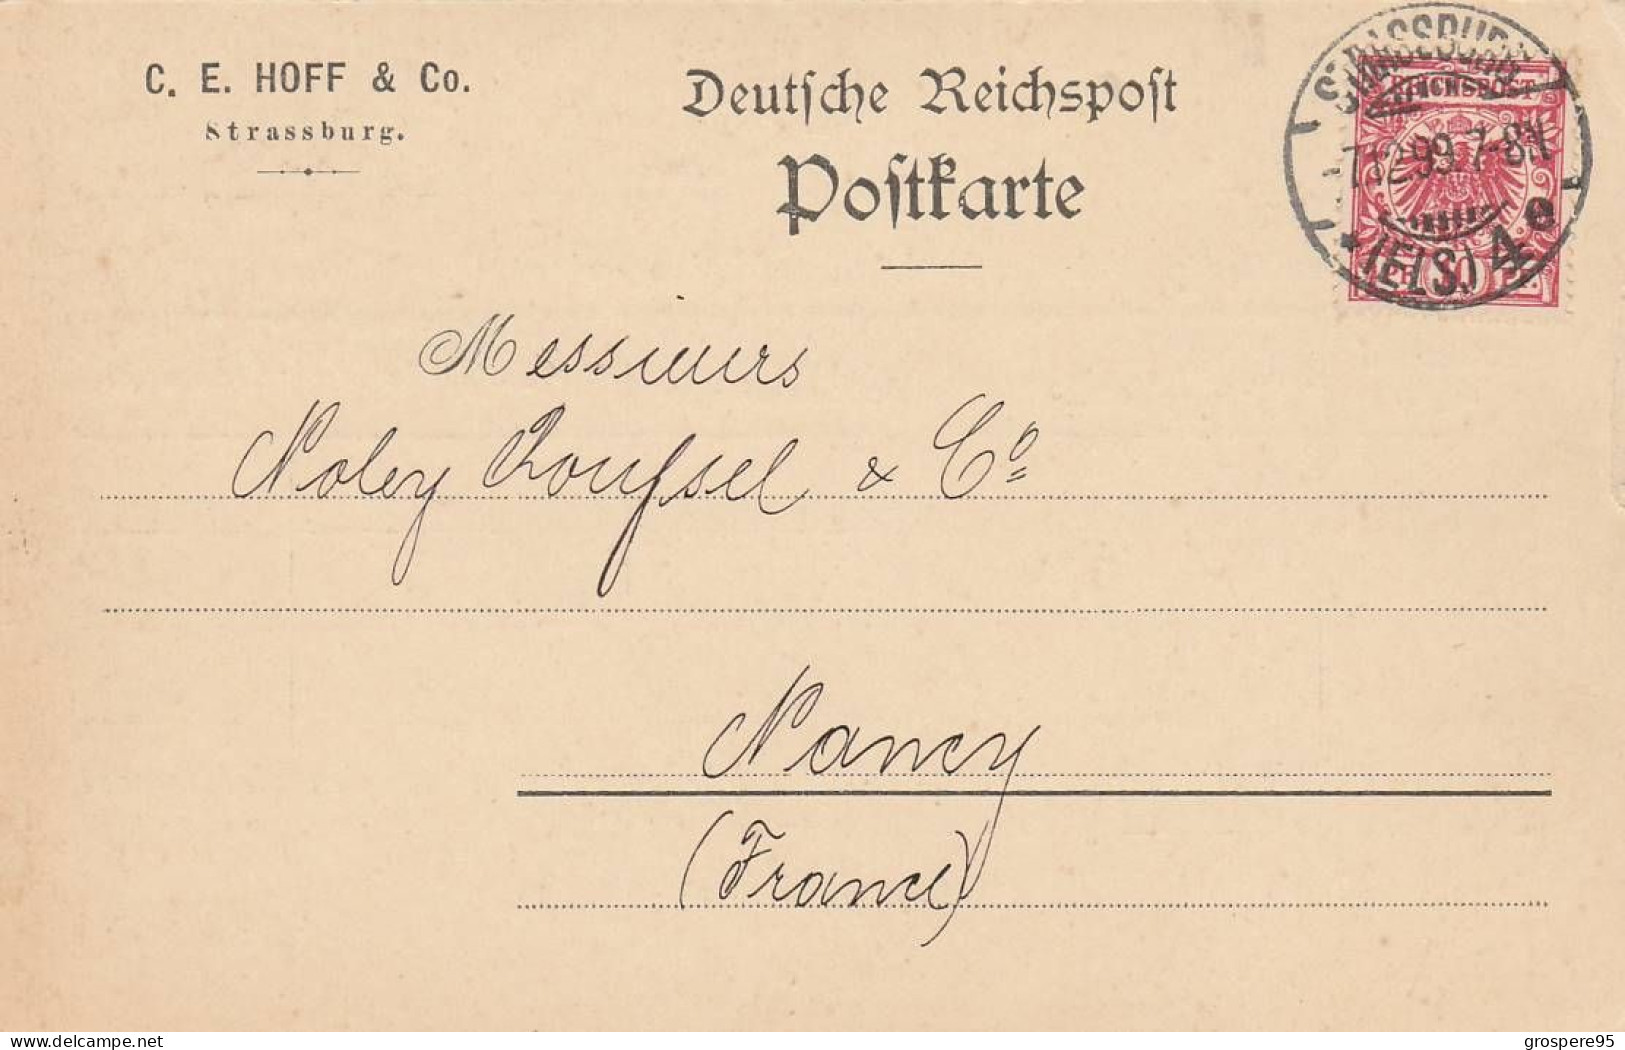 C. E. HOFF & Co.
Strassburg.
Deutsche Reichspost
Postkarte
STRASSBURG
REICHSPOST
7.12.99.7-8N
* (ELS.) 4 e
PF. 10 PF.
Messieurs
Noley Roussel & Cº
Nancy
(France)
delcampe.net
grospere95